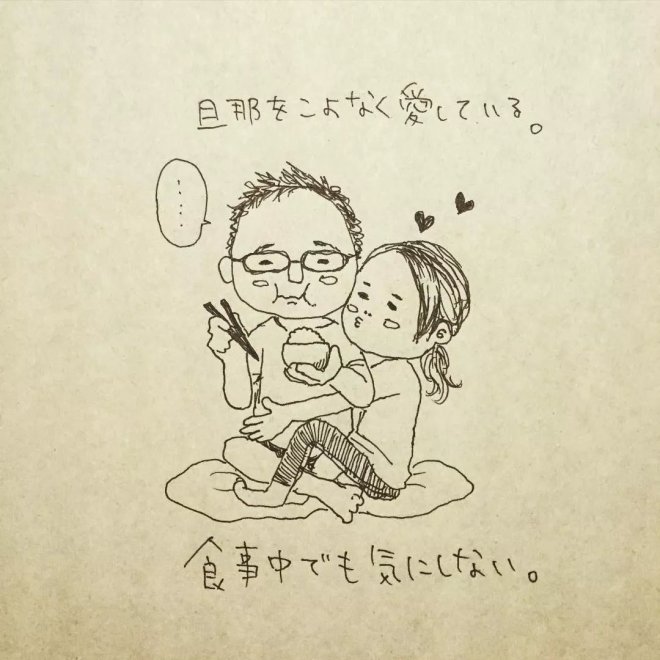 旦那をこよなく愛している。
......
食事中でも気にしない。